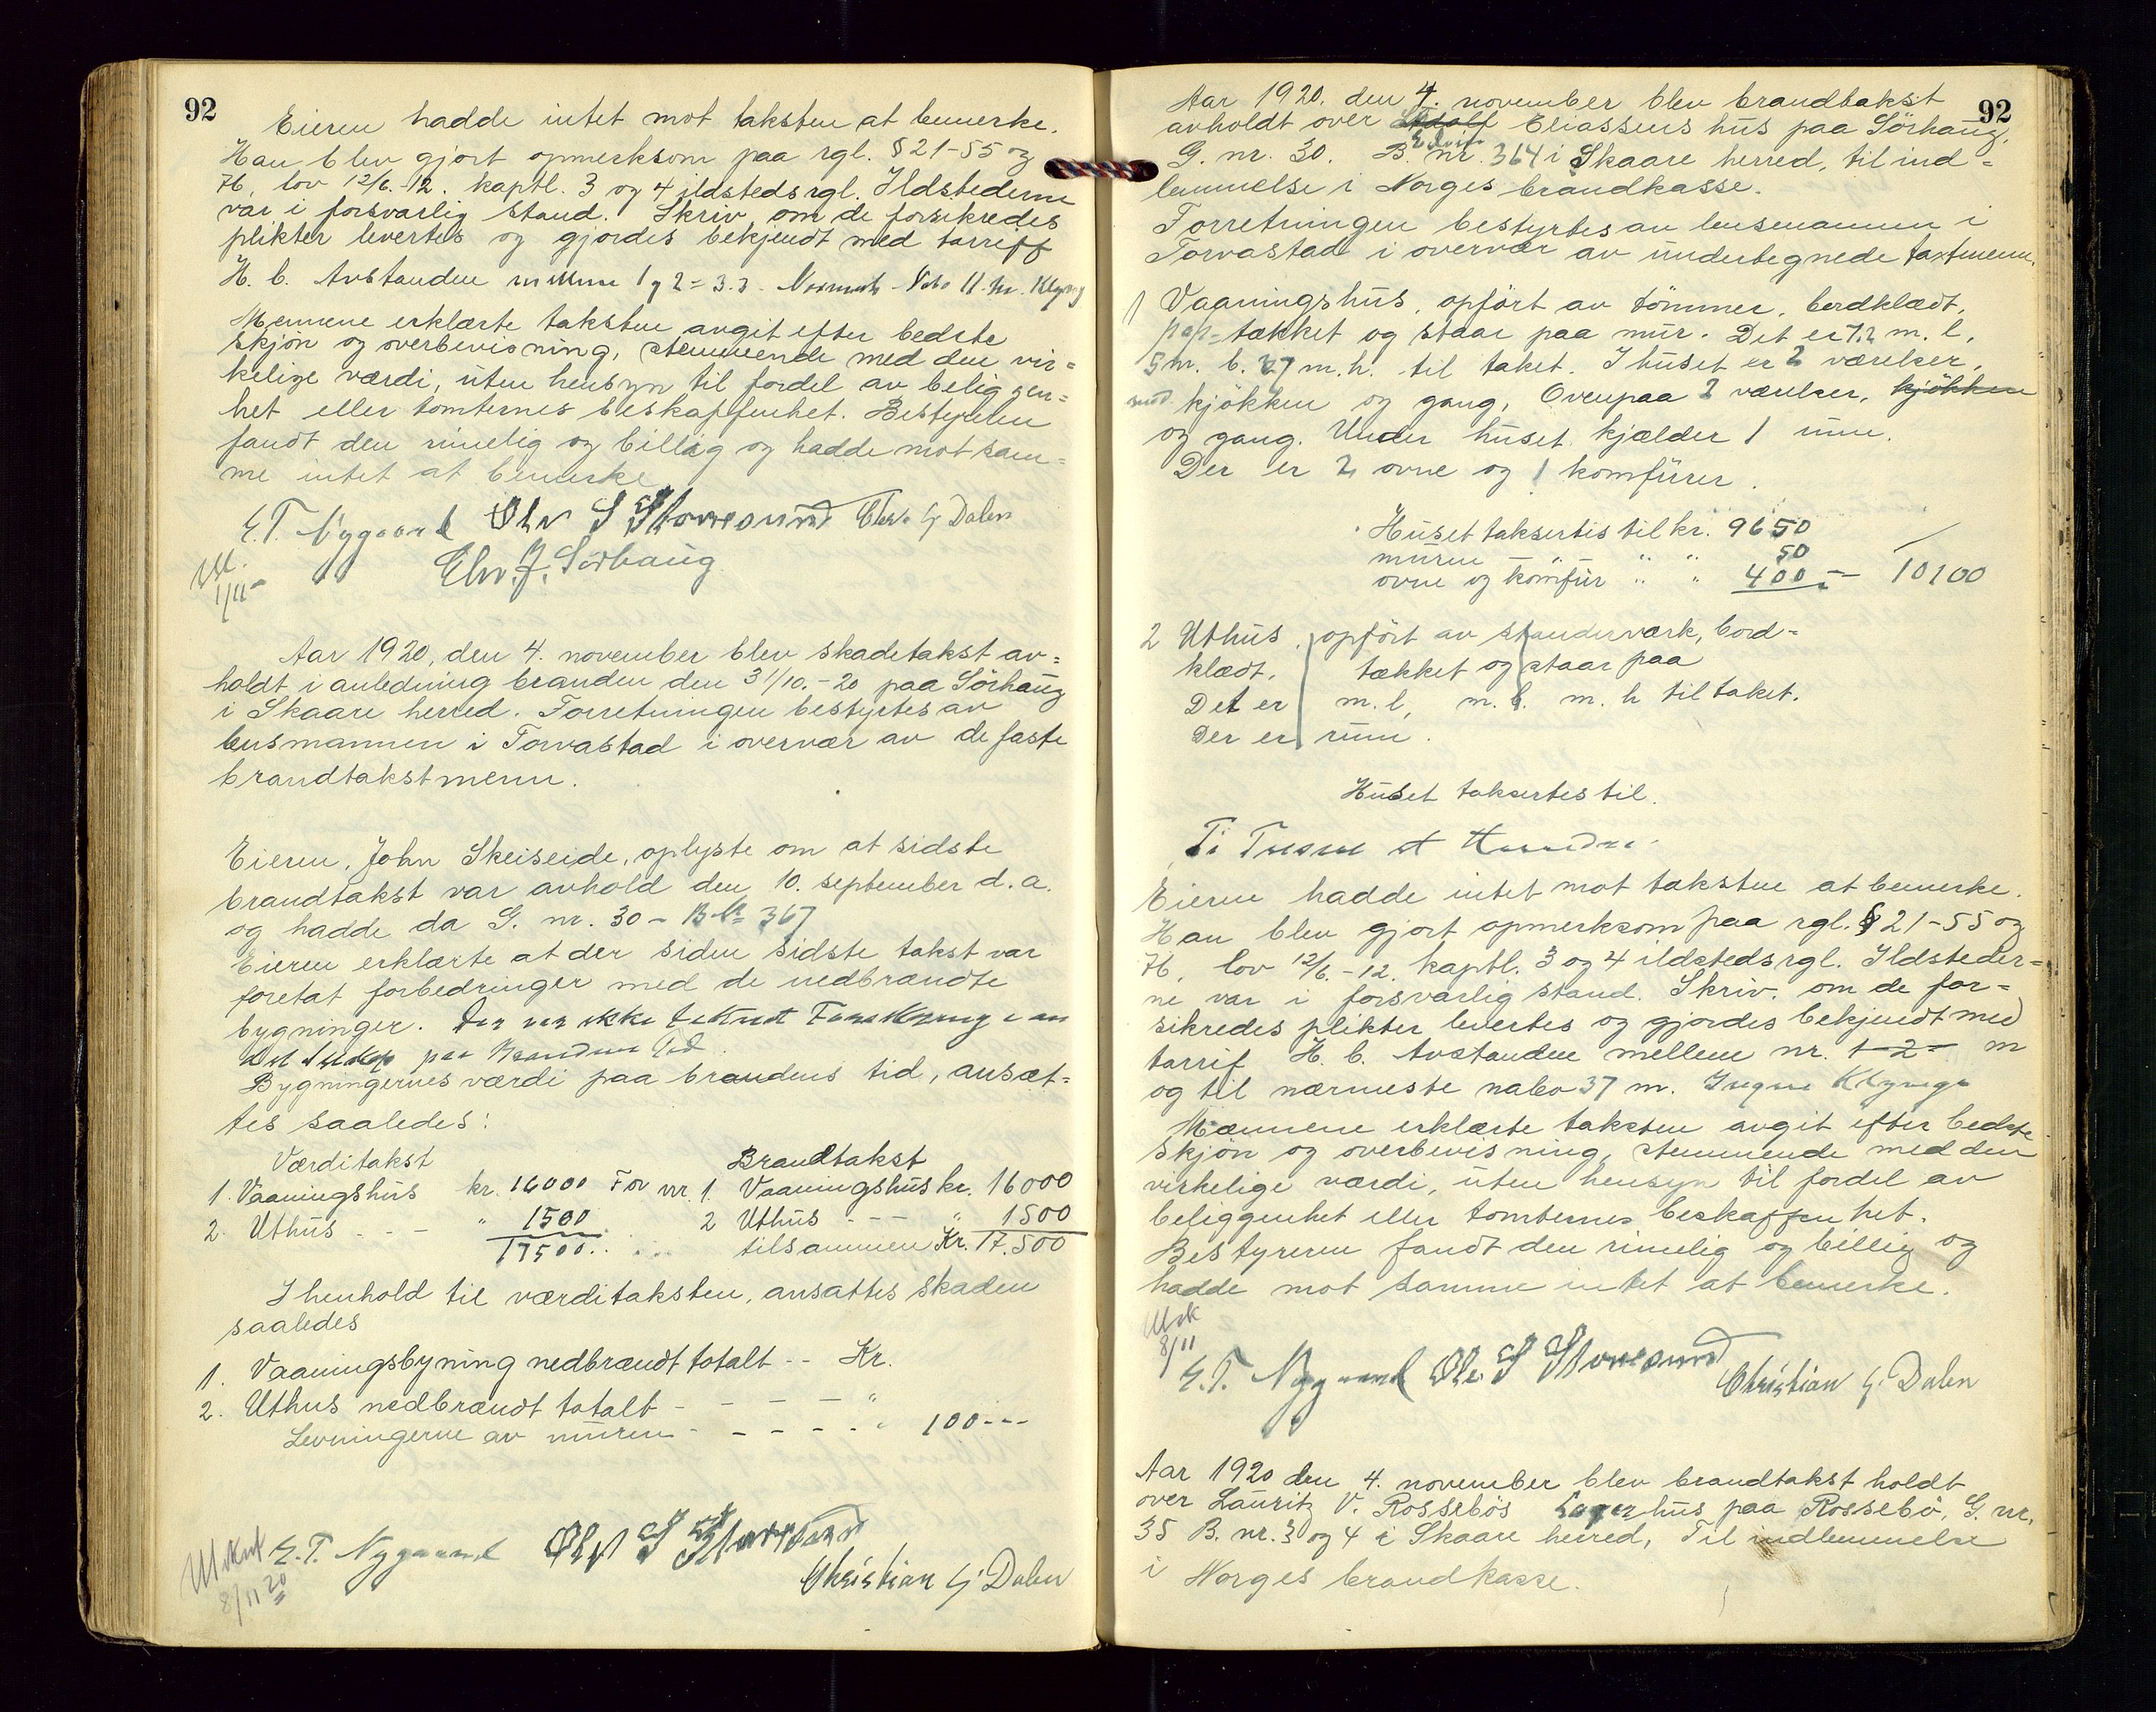 92
Eieren hadde intet mot taksten at bemerke.
Han blev gjort opmerksom paa rgl. § 21-55 og
76, lov 12/6-12. kaptl. 3 og 4 ildstedsrgl. Ildstederne
var i forsvarlig stand. Skriv. om de forsikredes
plikter levertes og gjordes bekjendt med tarriff
H. b. Avstanden mellem 1 og 2 = 3.3 - Nabo 11 m.
Mennene erklærte taksten avgit efter bedste
skjön og overbevisning, stemmende med den vir=
kelige værdi, uten hensyn til fordel av beliggen=
het eller tomternes beskaffenhet. Bestyreren
fandt den rimelig og billig og hadde mot sam=
me intet at bemerke
E. T. Nygaard Ole S Storesund Chr. G Dalen
Eln. J. Sörhaug
1/11
Aar 1920, den 4. november blev skadetakst av=
holdt i anledning branden den 31/10.-20 paa Sörhaug
i Skaare herred. Forretningen bestyrtes av
lensmannen i Torvastad i overvær av de faste
brandtakstmenn.
Eieren, John Skeiseide, oplyste om at sidste
brandtakst var avhold den 10. september d.a.
og hadde da G. nr. 30 - B. nr 367
Eieren erklærte at der siden sidste takst var
foretat forbedringer med de nedbrændte
bygninger. Der var ikke tegnet Forsikring i an
det Selskap paa Brandens Tid.
Bygningernes værdi paa brandens tid, ansæt=
tes saaledes:
Værditakst Brandtakst
1. Vaaningshus kr. 16000 For nr. 1. Vaaningshus kr. 16000
2. Uthus - - " 1500 2 Uthus - - - " 1500
17500.. tilsammen Kr. 17.500
I henhold til værditaksten, ansattes skaden
saaledes
1. Vaaningsbyning nedbrændt totalt -- Kr.
2. Uthus nedbrændt totalt - - - - - "
Levningerne av muren - - - - - " 100---
E. T. Nygaard Ole S Storesund
Christian G Dalen
8/11 20
92
Aar 1920. den 4. november blev brandtakst
avholdt over Adolf Eliassens hus paa Sörhaug,
Edvin
G. nr. 30. B. nr. 364 i Skaare herred, til ind=
lemmelse i Norges brandkasse.
Forretningen bestyrtes av lensmannen i
Torvastad i overvær av undertegnede taxtmenn.
1 Vaaningshus, opfört av tömmer, bordklædt,
pap-tækket og staar paa mur. Det er 7.2 m. l.
5 m. b. 3.7 m. h. til taket. I huset er 2 værelser,
kjökken og gang, Ovenpaa 2 værelser, kjökken
og gang. Under huset kjælder 1 rum.
Der er 2 ovne og 1 komfürer.
Huset taksertes til kr. 9650
muren - " " " 50
ovne og komfür " " 400 - 10100
2 Uthus, opfört av standerværk, bord=
klædt, tækket og staar paa
Det er m. l, m. b. m. h til taket.
Der er rum.
Huset taksertes til.
Ti Tusen et Hundre
Eieren hadde intet mot taksten at bemerke.
Han blev gjort opmerksom paa rgl. § 21-55 og
76, lov 12/6-12. kaptl. 3 og 4 ildstedsrgl. Ildsteder=
ne var i forsvarlig stand. Skriv. om de for=
sikredes plikter levertes og gjordes bekjendt med
tarrif H. b. Avstanden mellem nr. 1-2- m
og til nærmeste nabo 37 m.
Mænnene erklærte taksten avgit efter bedste
skjön og overbevisning, stemmende med den
virkelige værdi, uten hensyn til fordel av
beliggenhet eller tomternes beskaffenhet.
Bestyreren fandt den rimelig og billig og
hadde mot samme intet at bemerke.
8/11
E. T. Nygaard Ole S Storesund
Christian G. Dalen
Aar 1920 den 4. november blev brandtakst holdt
over Lauritz V. Rossebös Lagerhus paa Rossebö, G. nr.
35 B. nr. 3 og 4 i Skaare herred, Til indlemmelse
i Norges brandkasse.